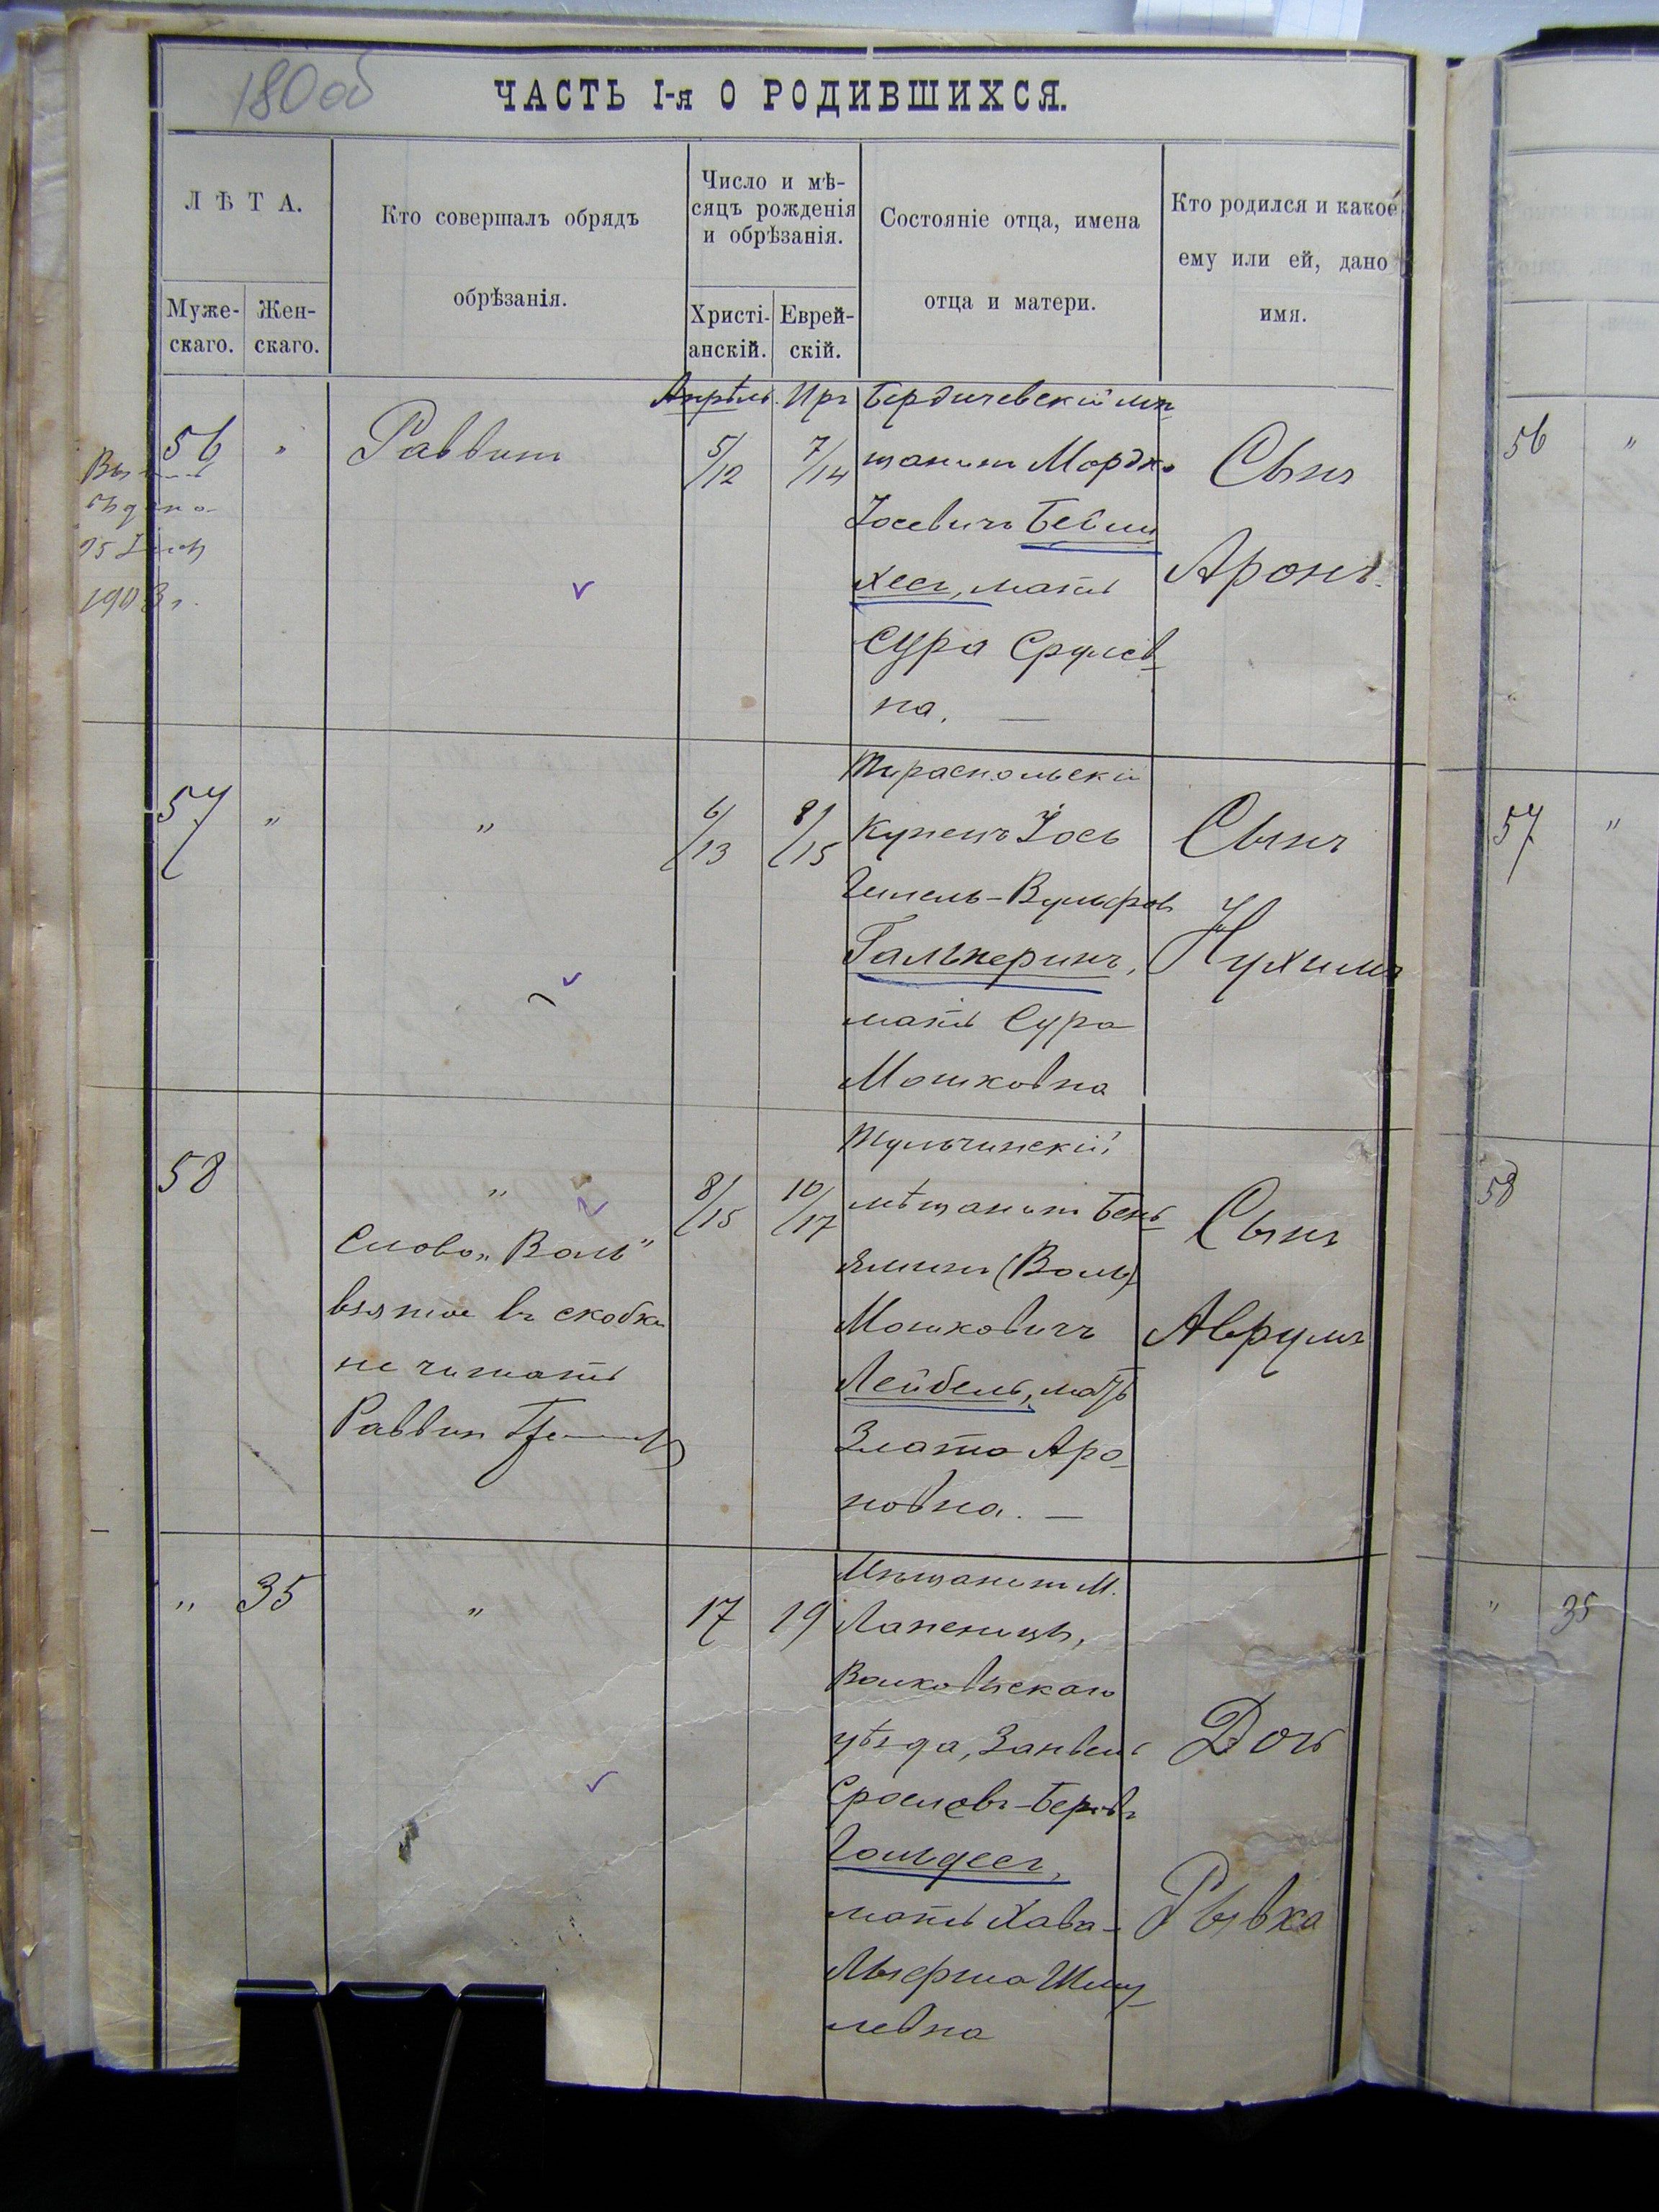 180 об
ЧАСТЬ I-я О РОДИВШИХСЯ.
ЛѢТА.
Муже-
скаго.
Жен-
скаго.
Кто совершалъ обрядъ
обрѣзанія.
Число и мѣ-
сяцъ рожденія
и обрѣзанія.
Христі-
анскій.
Еврей-
скій.
Состояніе отца, имена
отца и матери.
Кто родился и какое
ему или ей, дано
имя.
Апрѣль. Иръ
56 " Раввинъ 5/12 7/14
Бердичевскій мѣ-
щанинъ Мордко
Іосевичъ
мать
Сура Срулев-
на. —
Сынъ
Аронъ.
1903 г.
57 " " 6/13 8/15
Тираспольскій
купецъ Іось
Гипель-Вульфовъ
Гальперинъ,
мать Сура
Мошковна
Сынъ
Нухимъ
58 " 8/15 10/17
Слово „Воль"
взятое въ скобки
не читать
Раввин
Тульчинскій
мѣщанинъ Бень-
яминъ (Воль)
Мошковичъ
Лейбель, мать
Злата Аро-
новна. —
Сынъ
Аврумъ
" 35 " 17 19
Мѣщанинъ М.
Лапеницы,
Волковыскаго
уѣзда, Занвель
Сроелевъ-Беровъ
мать Хава-
Шму-
левна
Дочь
Рывка
56 "
57 "
58
" 35